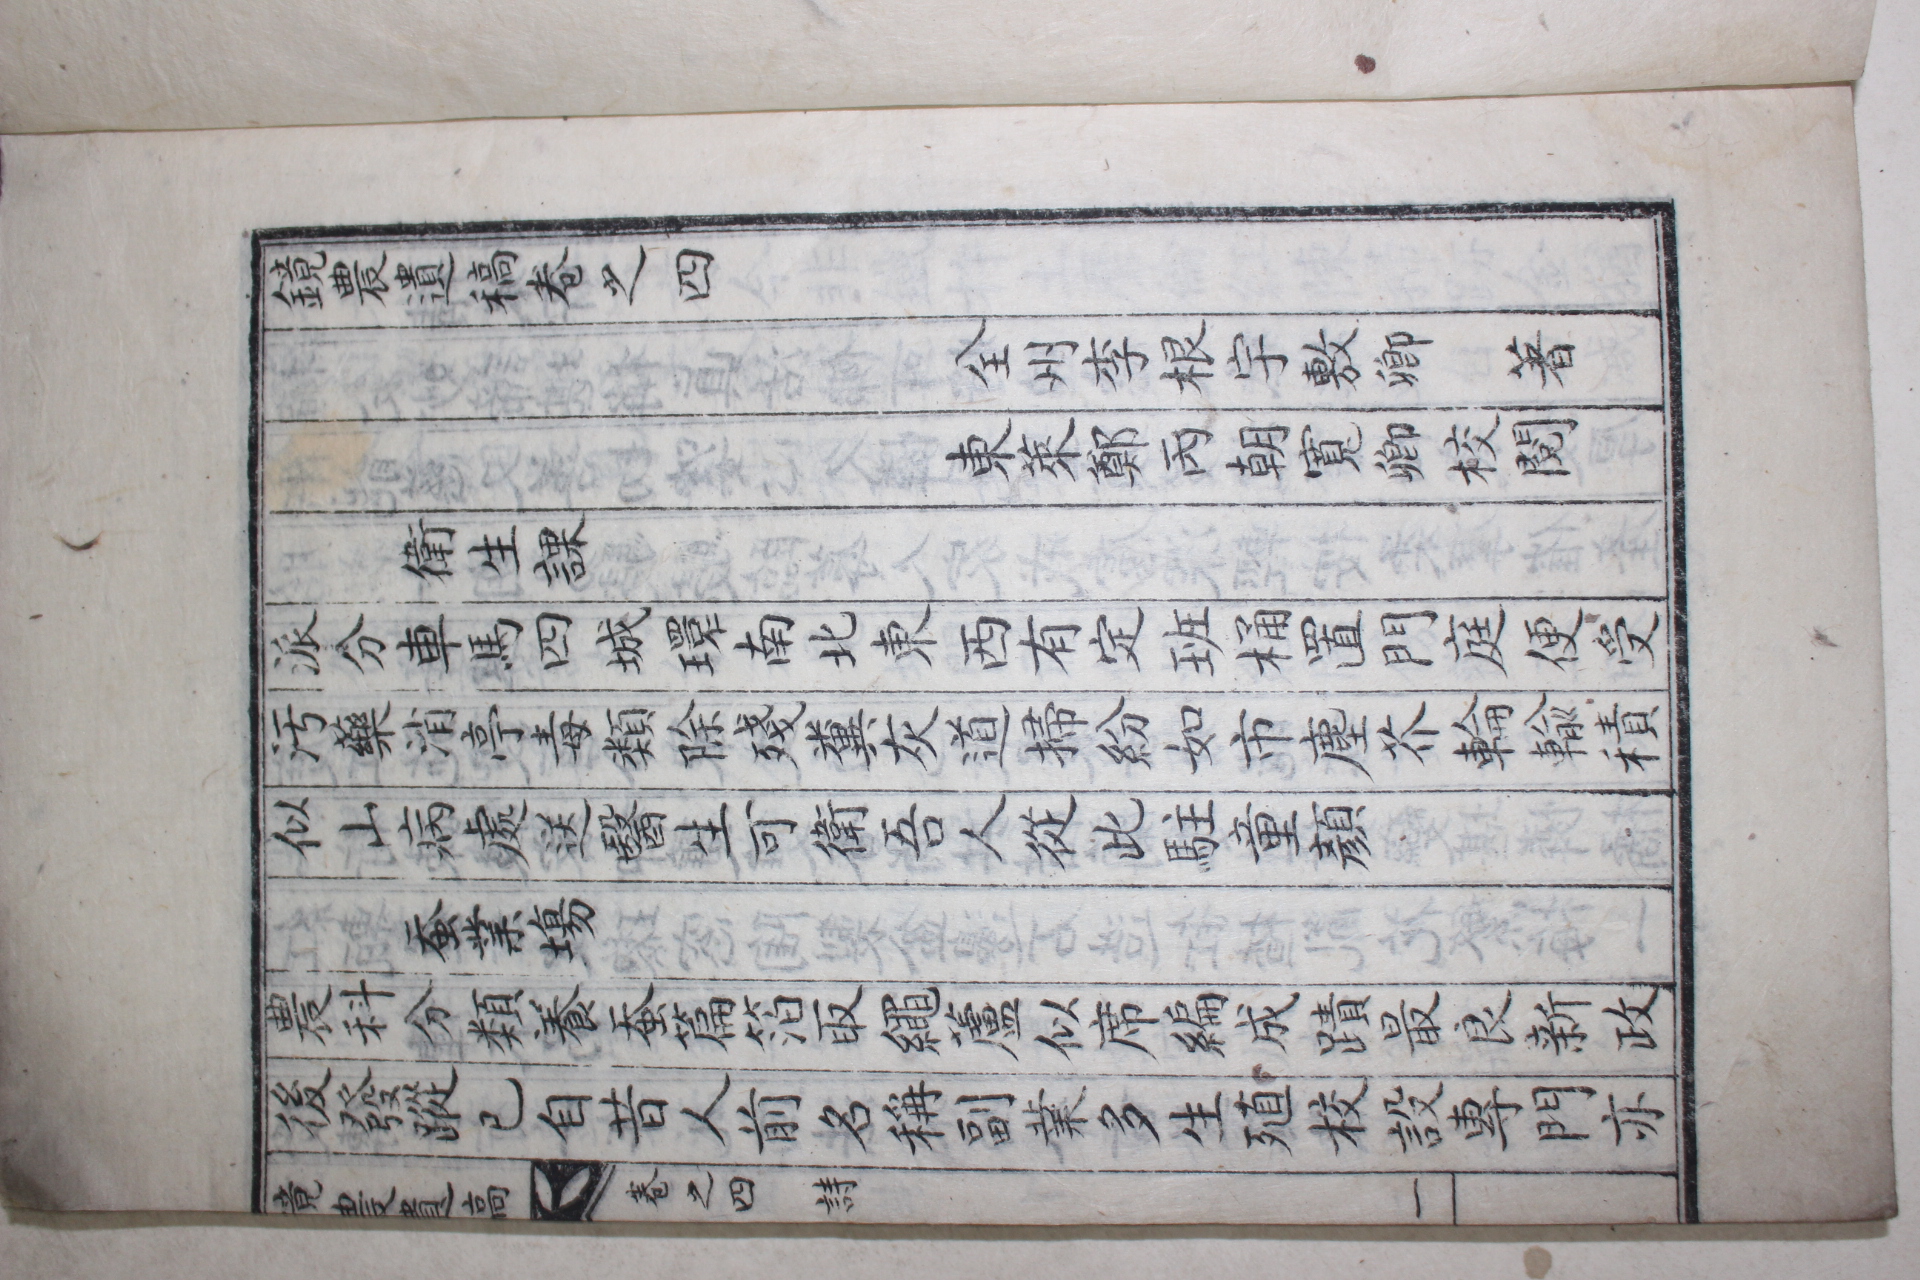 鏡農遺稿卷之四
全州李根宇敷卿 著
東萊鄭丙朝寬卿校閱
衛生課
派分車馬四城環南北東西有定班桶置門庭便受
汚藥消亭毒類除殘糞灰道掃紛如市塵芥輪輸積
似山病處送醫生可衛吾人從此駐童顔
蚕業場
農科分類養蚕篇箔取繩蘆似席編成蹟最良新政
後發蹤已自昔人前名稱副業多生殖校設專門亦
鏡農遺稿 卷之四 詩 一